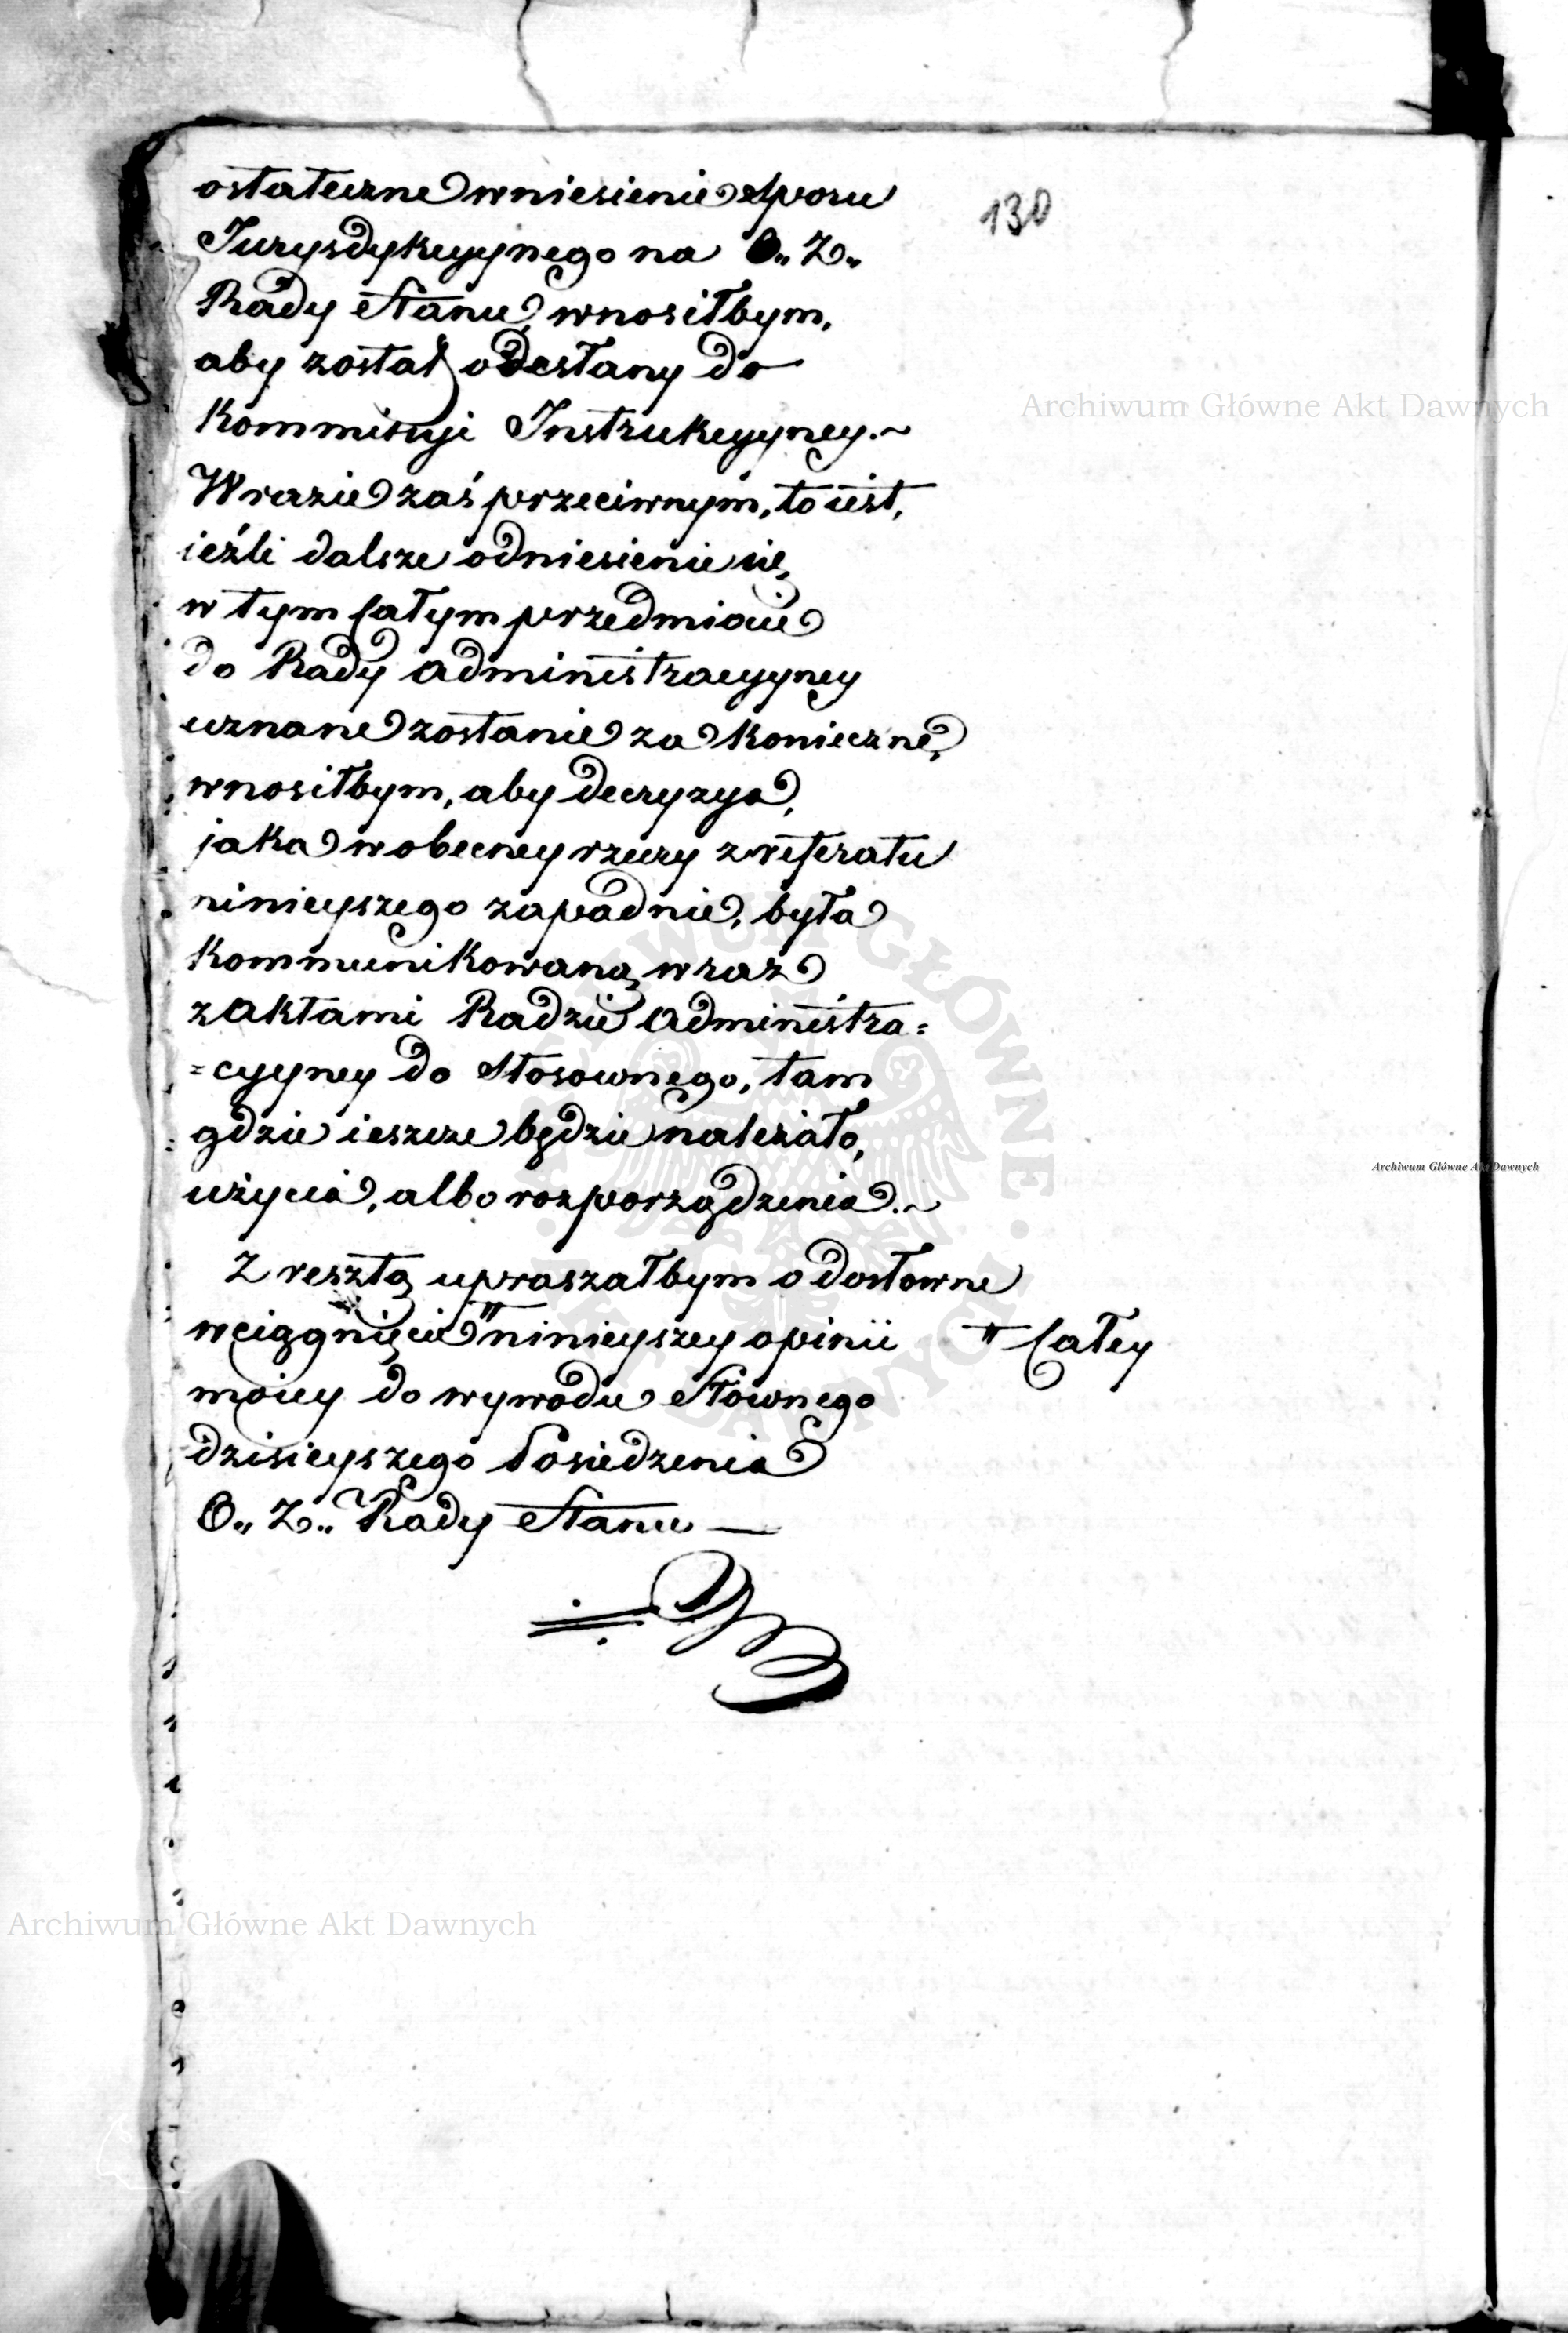 130
ostateczne wniesienie sporu
Jurysdykcyynego na O„ Z„
Rady Stanu, wnosiłbym,
aby został odesłany do
Kommissyi Instrukcyyney.~
W razie zaś przeciwnym, to iest,
ieźli dalsze odniesienie się,
w tym całym przedmiocie
do Rady Administracyyney
uznane zostanie za konieczne,
wnosiłbym, aby decyzya,
jaka w obecney rzeczy z referatu
ninieyszego zapadnie, była
kommunikowaną wraz
z aktami Radzie Administra=
=cyyney do stosownego, tam
gdzie ieszcze będzie należało,
użycia, albo rozporządzenia.~
Z resztą upraszałbym o dosłowne
wciągnięcie ╥ ninieyszey opinii ╥ Całey
moiey do wywodu Słownego
dzisieyszego Posiedzenia
O„ Z„ Rady Stanu —
Archiwum Główne Akt Dawnych
Archiwum Główne Akt Dawnych
Archiwum Główne Akt Dawnych
ARCHIWUM GŁÓWNE • AKT DAWNYCH •